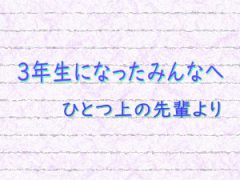 3年生になったみんなへ
ひとつ上の先輩より